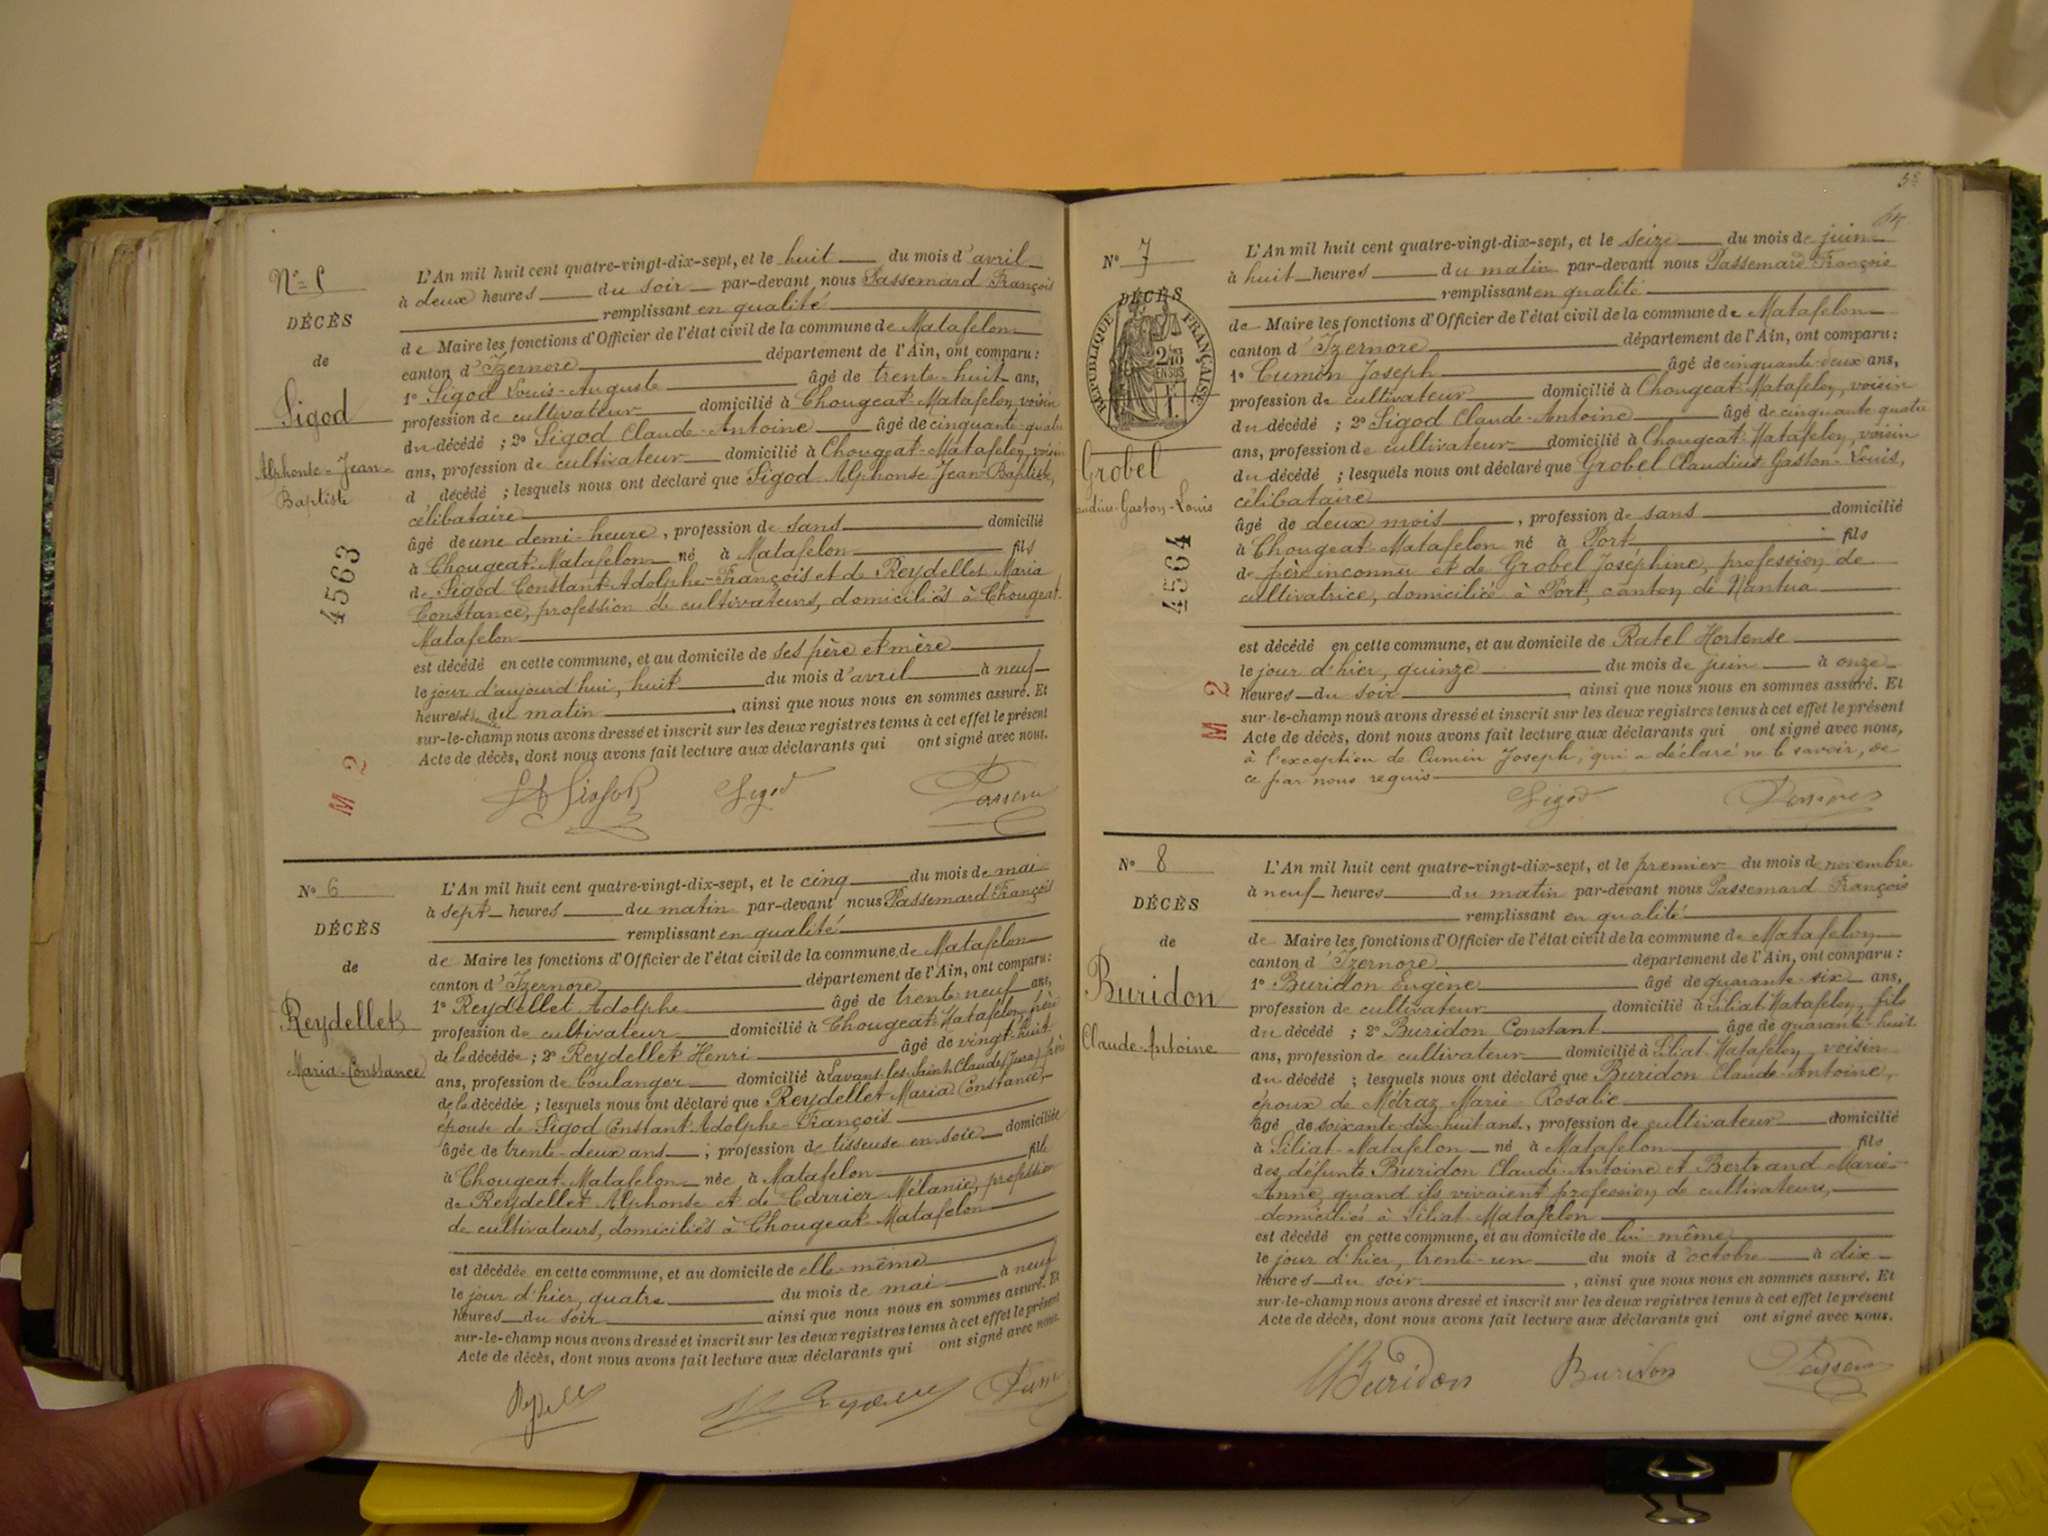 Nº 5
DÉCÈS
de
Sigod
Alphonse-Jean-
Baptiste
4563
M 2
L'An mil huit cent quatre-vingt-dix-sept, et le huit du mois d'avril
à deux heures du soir par-devant nous Passemard François
remplissant en qualité
de Maire les fonctions d'Officier de l'état civil de la commune de Matafelon
canton d'Izernore département de l'Ain, ont comparu :
1º Sigod Louis-Auguste âgé de trente-huit ans,
profession de cultivateur domicilié à Chougeat-Matafelon, voisin
du décédé ; 2º Sigod Claude-Antoine âgé de cinquante-quatre
ans, profession de cultivateur domicilié à Chougeat-Matafelon, voisin
d décédé ; lesquels nous ont déclaré que Sigod Alphonse Jean-Baptiste,
célibataire
âgé de une demi-heure, profession de sans domicilié
à Chougeat-Matafelon né à Matafelon fils
de Sigod Constant Adolphe-François et de Reydellet Maria
Constance, profession de cultivateurs, domiciliés à Chougeat-
Matafelon
est décédé en cette commune, et au domicile de ses père et mère
le jour d'aujourd'hui, huit du mois d'avril à neuf
heures et demie du matin, ainsi que nous nous en sommes assuré. Et
sur-le-champ nous avons dressé et inscrit sur les deux registres tenus à cet effet le présent
Acte de décès, dont nous avons fait lecture aux déclarants qui ont signé avec nous.
Sigod
Nº 6
DÉCÈS
de
Reydellet
Maria-Constance
L'An mil huit cent quatre-vingt-dix-sept, et le cinq du mois de mai
à sept heures du matin par-devant nous Passemard François
remplissant en qualité
de Maire les fonctions d'Officier de l'état civil de la commune de Matafelon
canton d'Izernore département de l'Ain, ont comparu :
1º Reydellet Adolphe âgé de trente-neuf ans,
profession de cultivateur domicilié à Chougeat-Matafelon, frère
de la décédée ; 2º Reydellet Henri âgé de vingt-huit
ans, profession de boulanger domicilié à Lavans-les-Saint-Claude (Jura) frère
de la décédée ; lesquels nous ont déclaré que Reydellet Maria Constance,
épouse de Sigod Constant Adolphe-François
âgée de trente-deux ans ; profession de tisseuse en soie domiciliée
à Chougeat-Matafelon née à Matafelon fille
de Reydellet Alphonse et de Carrier Mélanie, profession
de cultivateurs, domiciliés à Chougeat-Matafelon
est décédée en cette commune, et au domicile de elle-même
le jour d'hier, quatre du mois de mai à neuf
heures du soir ainsi que nous nous en sommes assuré. Et
sur-le-champ nous avons dressé et inscrit sur les deux registres tenus à cet effet le présent
Acte de décès, dont nous avons fait lecture aux déclarants qui ont signé avec nous.
Nº 7
DÉCÈS
RÉPUBLIQUE FRANÇAISE
Grobel
Gaston-Louis
4564
M 2
L'An mil huit cent quatre-vingt-dix-sept, et le seize du mois de juin
à huit heures du matin par-devant nous Passemard François
remplissant en qualité
de Maire les fonctions d'Officier de l'état civil de la commune de Matafelon
canton d'Izernore département de l'Ain, ont comparu :
1º Cumin Joseph âgé de cinquante-deux ans,
profession de cultivateur domicilié à Chougeat-Matafelon, voisin
du décédé ; 2º Sigod Claude-Antoine âgé de cinquante quatre
ans, profession de cultivateur domicilié à Chougeat-Matafelon, voisin
du décédé ; lesquels nous ont déclaré que Grobel Claudius-Gaston-Louis,
célibataire
âgé de deux mois, profession de sans domicilié
à Chougeat-Matafelon né à Port fils
de père inconnu et de Grobel Joséphine, profession de
cultivatrice, domiciliée à Port, canton de Nantua
est décédé en cette commune, et au domicile de Ratel Hortense
le jour d'hier, quinze du mois de juin à onze
heures du soir, ainsi que nous nous en sommes assuré. Et
sur-le-champ nous avons dressé et inscrit sur les deux registres tenus à cet effet le présent
Acte de décès, dont nous avons fait lecture aux déclarants qui ont signé avec nous,
à l'exception de Cumin Joseph, qui a déclaré ne le savoir, de
ce par nous requis
Sigod
Nº 8
DÉCÈS
de
Buridon
Claude-Antoine
L'An mil huit cent quatre-vingt-dix-sept, et le premier du mois de novembre
à neuf heures du matin par-devant nous Passemard François
remplissant en qualité
de Maire les fonctions d'Officier de l'état civil de la commune de Matafelon
canton d'Izernore département de l'Ain, ont comparu :
1º Buridon Eugène âgé de quarante-six ans,
profession de cultivateur domicilié à Siliat-Matafelon, fils
du décédé ; 2º Buridon Constant âgé de quarante-huit
ans, profession de cultivateur domicilié à Siliat-Matafelon, voisin
du décédé ; lesquels nous ont déclaré que Buridon Claude-Antoine,
époux de Métraz Marie-Rosalie
âgé de soixante dix-huit ans, profession de cultivateur domicilié
à Siliat-Matafelon né à Matafelon fils
des défunts Buridon Claude-Antoine et Bertrand Marie-
Anne, quand ils vivaient profession de cultivateurs,
domiciliés à Siliat-Matafelon
est décédé en cette commune, et au domicile de lui-même
le jour d'hier, trente-un du mois d'octobre à dix
heures du soir, ainsi que nous nous en sommes assuré. Et
sur-le-champ nous avons dressé et inscrit sur les deux registres tenus à cet effet le présent
Acte de décès, dont nous avons fait lecture aux déclarants qui ont signé avec nous.
Buridon Buridon